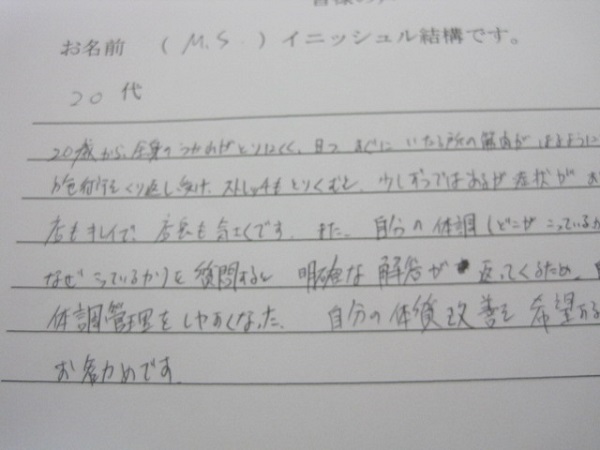 お名前 (M.S.) イニッシュル結構です。
20代
20歳から、全身の つかれがとりにくく、且つ すぐに いたる所の 筋肉が はるように
施術をくり返し受け、ストレッチもとりくむと、少しずつではあるが 症状が
店もキレイで、店長も気さくです。また、自分の体調(どこがこっているか
なぜこっているか)を質問すると 明確な解答が 返ってくるため、
体調管理をしやすくなった。自分の体質改善を希望する
お客力めです。